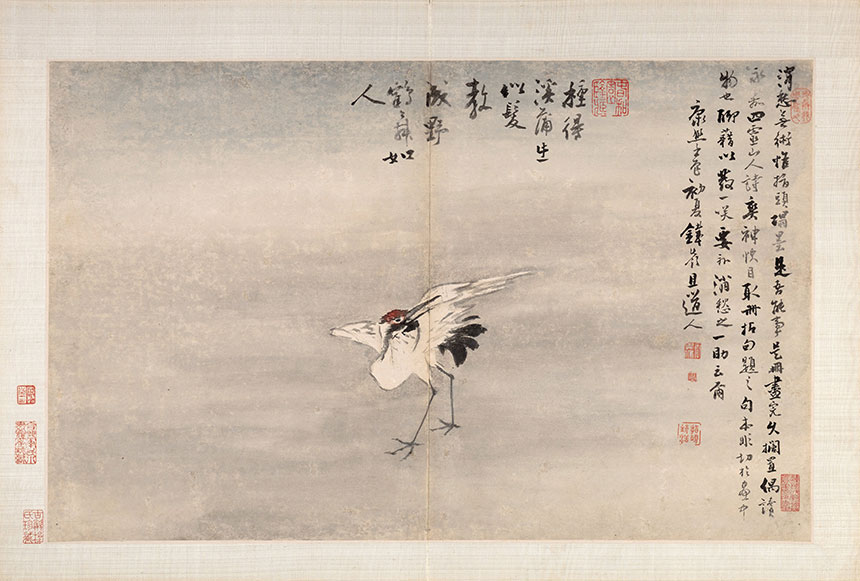 消愁無術惟指頭蘸墨是吾能事是冊畫完久擱置偶讀
永嘉四靈山人詩爽神快目取冊拈句題之句本非切於畫中
物也聊藉以發一笑要亦消愁之一助云爾
康熙 初夏鐵嶺且道人
種得
溪蒲生
似髮
教
成野
鶴舞如
人